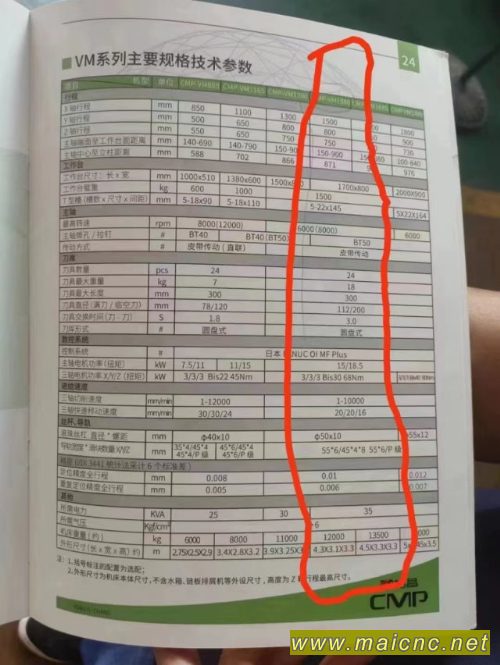 VM系列主要规格技术参数
24
项目 机型 单位 CMP-VM855 CMP-VM1165
行程
X轴行程 mm 850 1100 1300 1500 1800
Y轴行程 mm 500 650 800
Z轴行程 mm 550 650 750
主轴端面至工作台面距离 mm 140-690 140-790 150-900 100-840
主轴中心至立柱距离 mm 588 702 866 871 976
工作台
工作台尺寸：长x宽 mm 1000x510 1380x600 1700x800 2000x905
工作台载重 kg 600 1000 1500
T型槽（槽数x尺寸x间距） mm 5-18x90 5-18x110 5-22x145 5X22X164
主轴
最高转速 rpm 8000(12000) 6000(8000) 6000
主轴锥孔/拉钉 # BT40 BT40(BT50) BT50
传动方式 # 皮带传动（直联） 皮带传动
刀库
刀具数量 pcs 24 24
刀具最大重量 kg 7 18
刀具最大长度 mm 300 300
刀具直径（满刀/临空刀） mm 78/120 112/200
刀具交换时间（刀—刀） S 1.8 3.0
刀库形式 # 圆盘式 圆盘式
数控系统
控制系统 # 日本 NUC OI MF Plus
主轴电机功率（扭矩） kW 7.5/11 11/15 15/18.5
三轴电机功率X/Y/Z（扭矩） kW 3/3/3 Bis22 45Nm 3/3/3 Bis30 68Nm
进给速度
三轴切削速度 mm/min 1-12000 1-10000
三轴快速移动速度 mm/min 30/30/24 20/20/16
丝杆、导轨
滚珠丝杠 直径*螺距 mm φ40x10 φ50x10 φ55x12
mm 35*4/45*4 45*4/P级 45*6/45*4 45*6/P级 55*6/45*4*8 55*6/P级
定位精度全行程 mm 0.008 0.01 0.012
重复定位精度全行程 mm 0.005 0.006 0.007
其他
所需电力 KVA 25 30 35
所需气压 Kgf/cm² 6
机床重量（约） kg 6000 8000 11000 12000 13500
外形尺寸（长x宽x高）约 m 2.75X2.5X2.9 3.4X2.8X3.2 4.3X3.1X3.3 4.5X3.3X3.3
注：1.括号标注的配置为选配；
2.外形尺寸为机床本体尺寸，不含水箱、链板排屑机等外设尺寸，高度为Z轴行程最高尺寸。
CMP
www.maicnc.net